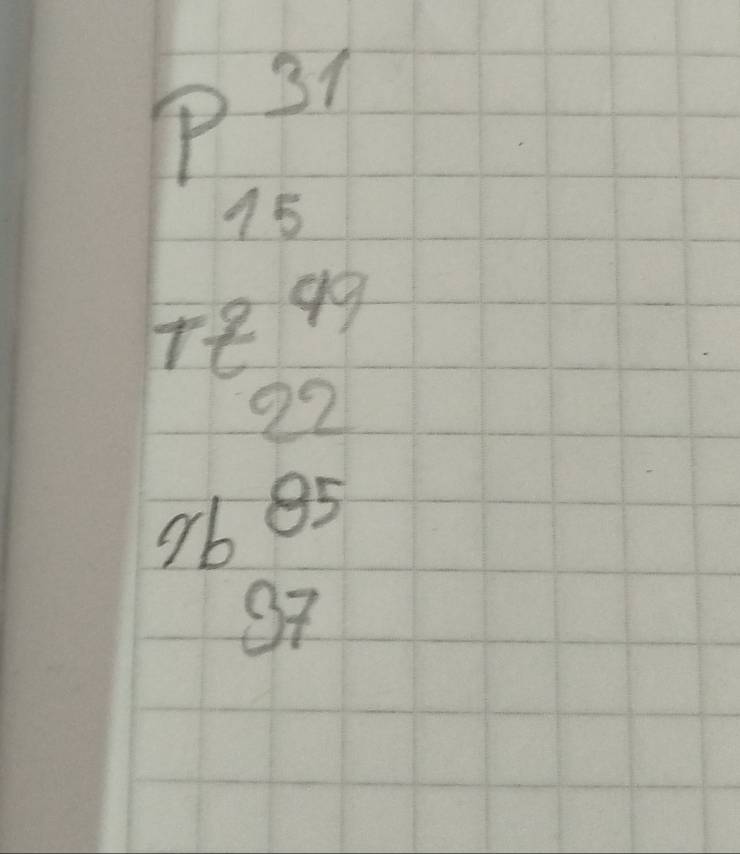 P 31
15
Ti 49
22
rb 85
37